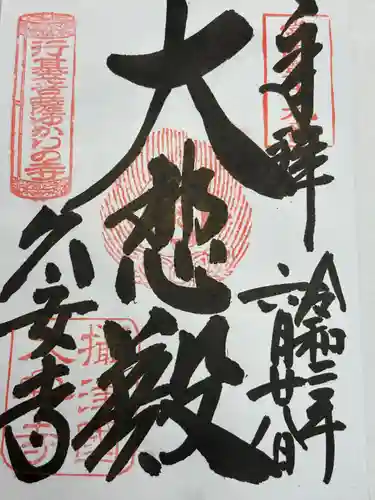 奉拝
令和二年
六月廿八日
大悲殿
久安寺
行基菩薩ゆかりの寺
摂津國
久安寺